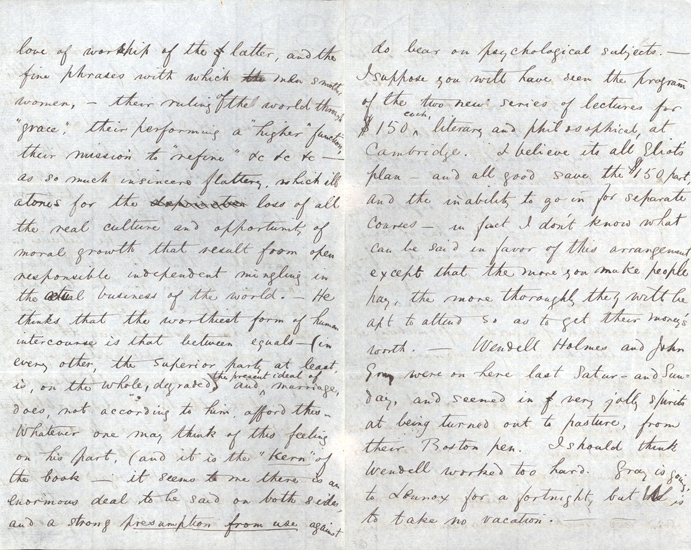 love of worship of the latter, and the
fine phrases with which the men smooth
women, – their ruling of the world through
"grace," their performing a "higher" function
their mission to "refine" &c &c &c –
as so much insincere flattery, which ill
atones for the loss of all
the real culture and opportunity of
moral growth that result from open
responsible independent mingling in
the actual business of the world. – He
thinks that the worthiest form of human
intercourse is that between equals – (in
every other, the superior party at least,
is, on the whole, degraded) and the present ideal of marriage,
does, not according to him, afford this –
Whatever one may think of this feeling
on his part, (and it is the "Kern" of
the book – it seems to me there is an
enormous deal to be said on both sides,
and a strong presumption from use against
do bear on psychological subjects. –
I suppose you will have seen the program
of the two new series of lectures for
$150 each, literary and philosophical, at
Cambridge. I believe its all Eliot's
plan – and all good save the $150 part
and the inability to go in for separate
courses – in fact I don't know what
can be said in favor of this arrangement
except that the more you make people
pay, the more thoroughly they will be
apt to attend so as to get their money's
worth. – Wendell Holmes and John
Gray were on here last Satur- and Sun-
day, and seemed in very jolly spirits
at being turned out to pasture, from
their Boston pen. I should think
Wendell worked too hard. Gray is going
to Lennox for a fortnight, but W is
to take no vacation. –